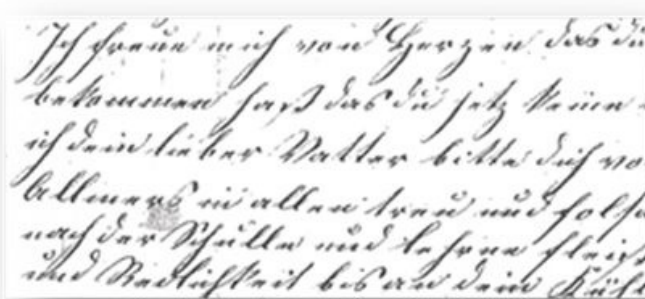 Ich freue mich von Herzen das du
bekommen hast das du jetz keine
ich dein lieber Vatter bitte dich vo
Allmers in allen treu und folgs
nach der Schulle und lehrne fleis
und Redlichkeit bis an dein Kühl